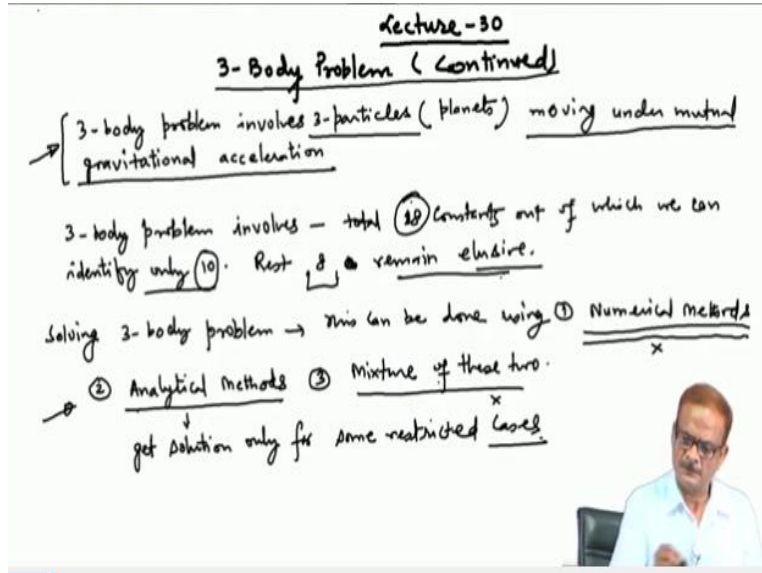 Lecture-30
3-Body Problem (Continued)
3-body problem involves 3-particles (planets) moving under mutual
gravitational acceleration
3-body problem involves - total 18 Constants out of which we can
identify only 10. Rest 8 remain elusive.
Solving 3-body problem → This can be done using ① Numerical Methods
x
② Analytical Methods ③ Mixture of these two.
x
get solution only for some restricted Cases.